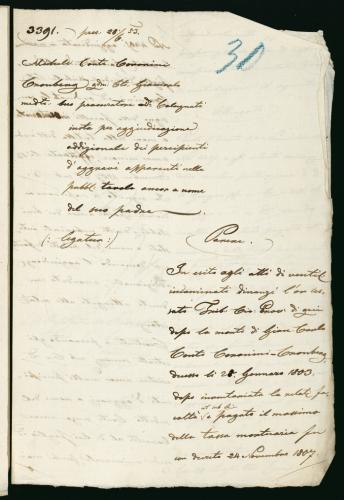 3391. pres. 20/6 53.
30
Michele Conte Coronini
Cronberg qdm Gio. Giancarlo
medte. suo procuratore Dr. Colognati
insta per aggiudicazione
addizionale dei percipienti
d'aggravi apparenti nelle
pubbl. tavole ancora a nome
del suo padre
(: legatur :)
Parere.
In esito agli atti di ventil.
incaminati dinanzi l'or ces-
sato Trib. Civ. Prov. di qui
dopo la morte di Gian Carlo
Conte Coronini-Cronberg
decesso li 28 Gennaro 1803.
dopo inventariata la relat. fa-
coltà e pagato il massimo
della tassa mortuaria fu
con decreto 24 Novembre 1807